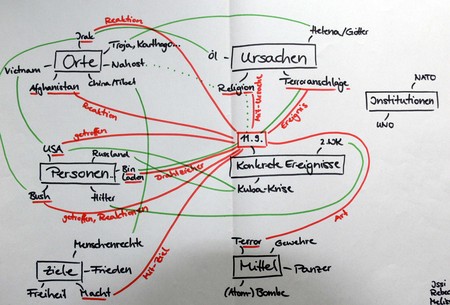 Reaktion
Irak
Troja, Karthago...
Helena/Götter
Vietnam
Orte
Nahost
Öl
Ursachen
Afghanistan
China/Tibet
Religion
Terroranschläge
NATO
Institutionen
UNO
Reaktion
Mit-Ursache
Ereignis
getroffen
11.9.
2.WK
USA
Russland
Personen
Bin
Laden
Drahtzieher
Konkrete Ereignisse
Bush
Hitler
Kuba-Krise
getroffen, Reaktionen
Art
Menschenrechte
Mit-Ziel
Terror
Gewehre
Ziele
Frieden
Mittel
Panzer
Freiheit
Macht
(Atom-)Bombe
Issi